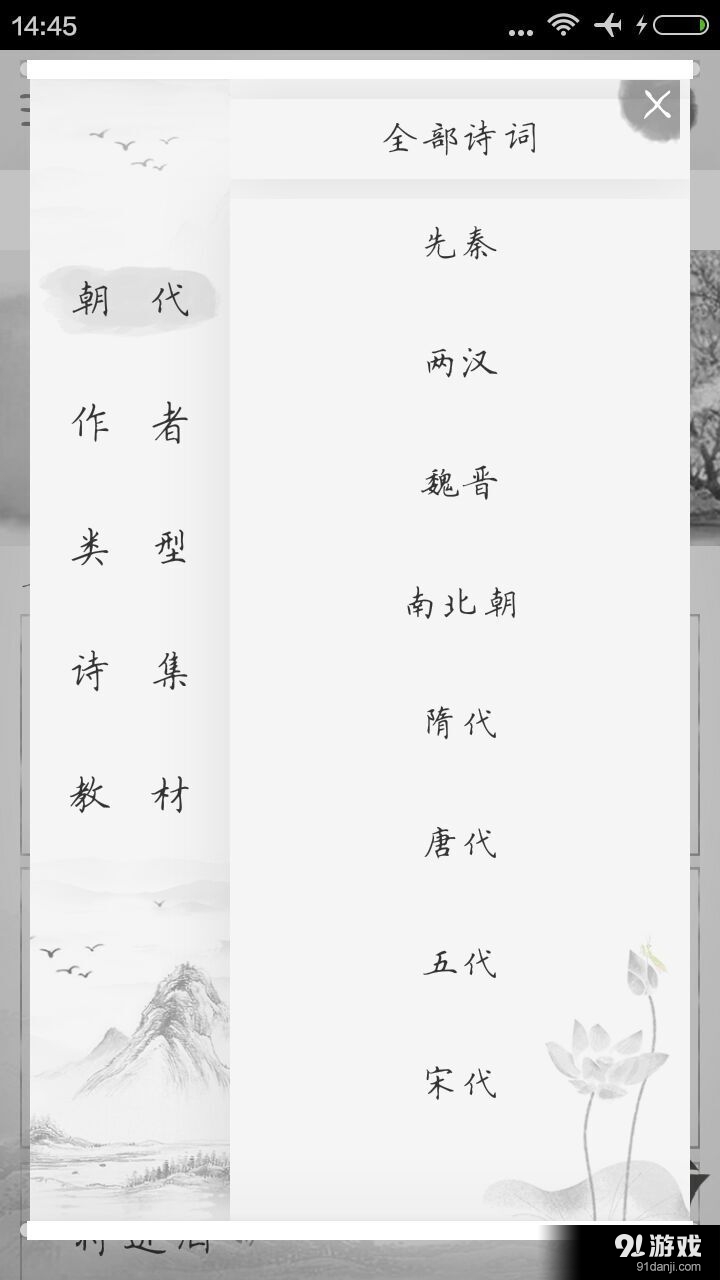 14:45
全部诗词
朝 代
作 者
类 型
诗 集
教 材
先秦
两汉
魏晋
南北朝
隋代
唐代
五代
宋代
91游戏
91danji.com